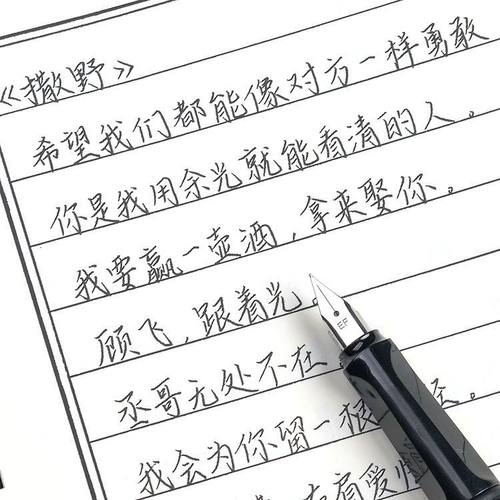 《撒野》
希望我们都能像对方一样勇敢
你是我用余光就能看清的人。
我要赢一壶酒，拿来娶你。
顾飞，跟着光
丞哥无处不在
我会为你留一根
有爱
EF